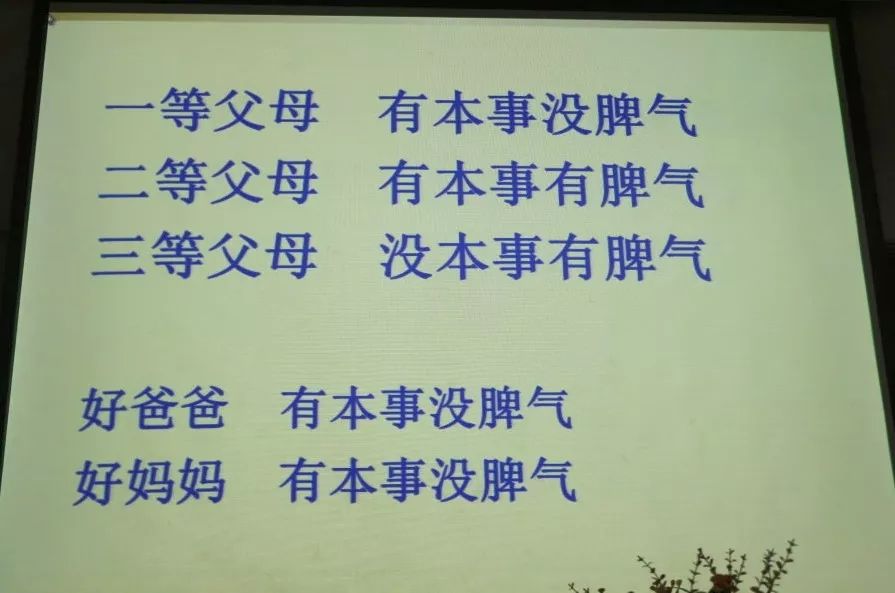 一等父母 有本事没脾气
二等父母 有本事有脾气
三等父母 没本事有脾气
好爸爸 有本事没脾气
好妈妈 有本事没脾气